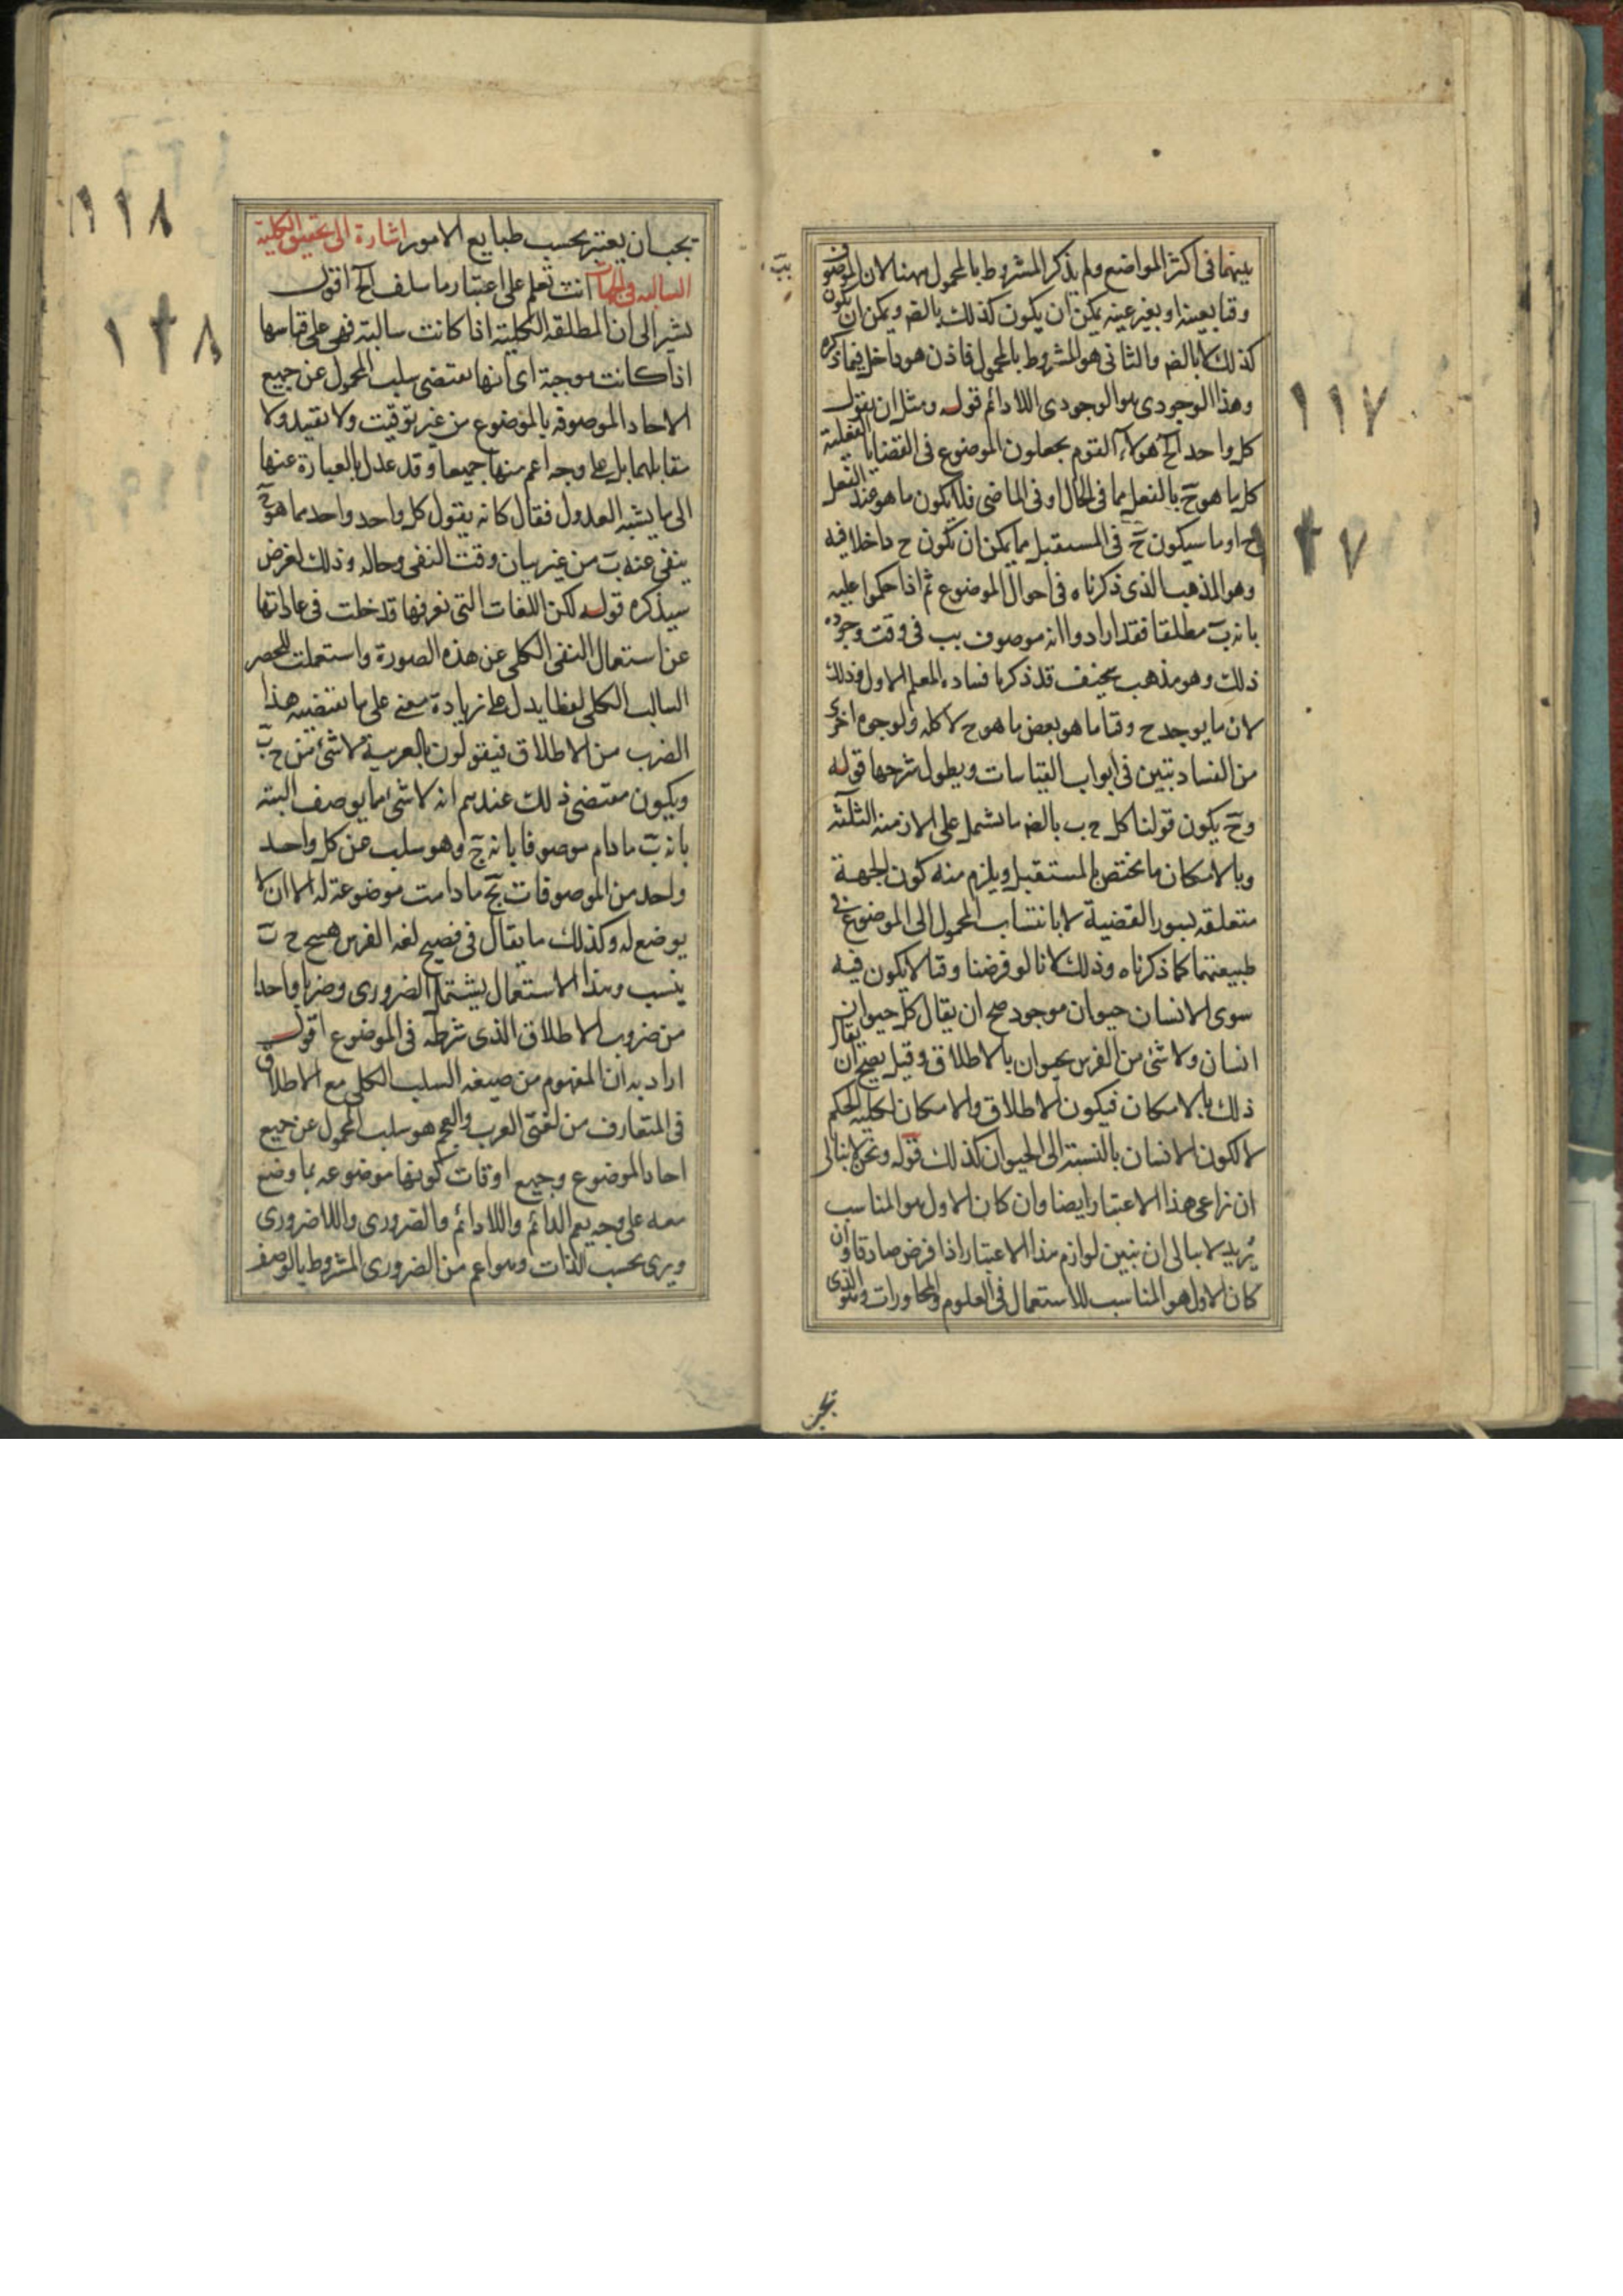 بينهما فى اكثر المواضع ولم يذكر المشروط بالمحمول ههنا لان الموصوف
وقتا بعينه او بغير عينه يمكن ان يكون كذلك بالضم ويمكن ان يكون
كذلك لا بالضم والثانى هو المشروط بالمحمول فاذن هو داخل فيما ذكره
وهذا الوجودى هو الوجودى اللادائم قوله ومثل ان يقول
كل واحد الخ هولاء القوم يجعلون الموضوع فى القضايا الفعلية
كل ما هو ح بالفعل مما فى الحال او فى الماضى فلا يكون ما هو عند العقل
ح او ما سيكون ح فى المستقبل مما يمكن ان يكون ح داخلا فيه
وهو المذهب الذى ذكرناه فى احوال الموضوع ثم اذا حكموا عليه
بانه ب مطلقا فقد ارادوا انه موصوف بب فى وقت وجوده
ذلك وهو مذهب سخيف قد ذكرنا فساده المعلم الاول وذلك
لان ما يوجد ح وقتا ما هو بعض ما هو ح لا كله ولوجوه اخرى
من الفساد تبين فى ابواب القياسات ويطول شرحها قوله
وح يكون قولنا كل ح ب بالضم ما يشمل على الازمنه الثلثه
وبالامكان ما يختص بالمستقبل ويلزم منه كون الجهة
متعلقه بسور القضية لا بانتساب المحمول الى الموضوع فى
طبيعتهما كما ذكرناه وذلك لانا لو فرضنا وقتا لا يكون فيه
سوى الانسان حيوان موجود صح ان يقال كل حيوان
انسان ولا شئ من الفرس بحيوان بالاطلاق وقيل يصح ان يقال
ذلك بالامكان فيكون الاطلاق والامكان لكلية الحكم
لا لكون الانسان بالنسبة الى الحيوان كذلك قوله ونحن لا نبالى
ان نراعى هذا الاعتبار ايضا وان كان الاول هو المناسب
يريد لا نبالى ان نبين لوازم هذا الاعتبار اذا فرض صادقا وان
كان الاول هو المناسب للاستعمال فى العلوم والمحاورات وهو الذى
يجب
١١٧
٢٧
يجب ان يعتبر بحسب طبايع الامور اشارة الى تحقيق الكلية
السالبه فى الجهات انت تعلم على اعتبار ما سلف الخ اقول
يشير الى ان المطلقه الكلية اذا كانت سالبة فهى على قياسها
اذا كانت موجبة اى انها تقتضى سلب المحمول عن جميع
الاحاد الموصوفه بالموضوع من غير توقيت ولا تقييد ولا
مقابلهما بل على وجه اعم منها جميعا وقد عدل بالعبارة عنها
الى ما يشبه العدول فقال كانه يقول كل واحد واحد مما هو ح
ينفى عنه ب من غير بيان وقت النفى وحاله وذلك لغرض
سيذكره قوله لكن اللغات التى نعرفها قد خلت فى عاداتها
عن استعمال النفى الكلى عن هذه الصورة واستعملت للحصر
السالب الكلى لفظا يدل على زيادة معنى على ما تقتضيه هذا
الضرب من الاطلاق فيقولون بالعربية لا شئ من ح ب
ويكون مقتضى ذلك عندهم انه لا شئ مما يوصف البته
بانه ب ما دام موصوفا بانه ج وهو سلب عن كل واحد
واحد من الموصوفات بج ما دامت موضوعة له الا ان لا
يوضع له وكذلك ما يقال فى فصيح لغه الفرس هيچ ح ب
نيست وهذا الاستعمال يشتمل الضرورى وضربا واحدا
من ضروب الاطلاق الذى شرطه فى الموضوع اقول
اراد به ان المفهوم من صيغه السلب الكلى مع الاطلاق
فى المتعارف من لغتى العرب والعجم هو سلب المحمول عن جميع
احاد الموضوع وجميع اوقات كونها موضوعه بما وضع
معه على وجه يعم الدائم واللادائم والضرورى واللاضرورى
بحسب الذات وهو اعم من الضرورى المشروط بالوصف
١١٨
١٢٨